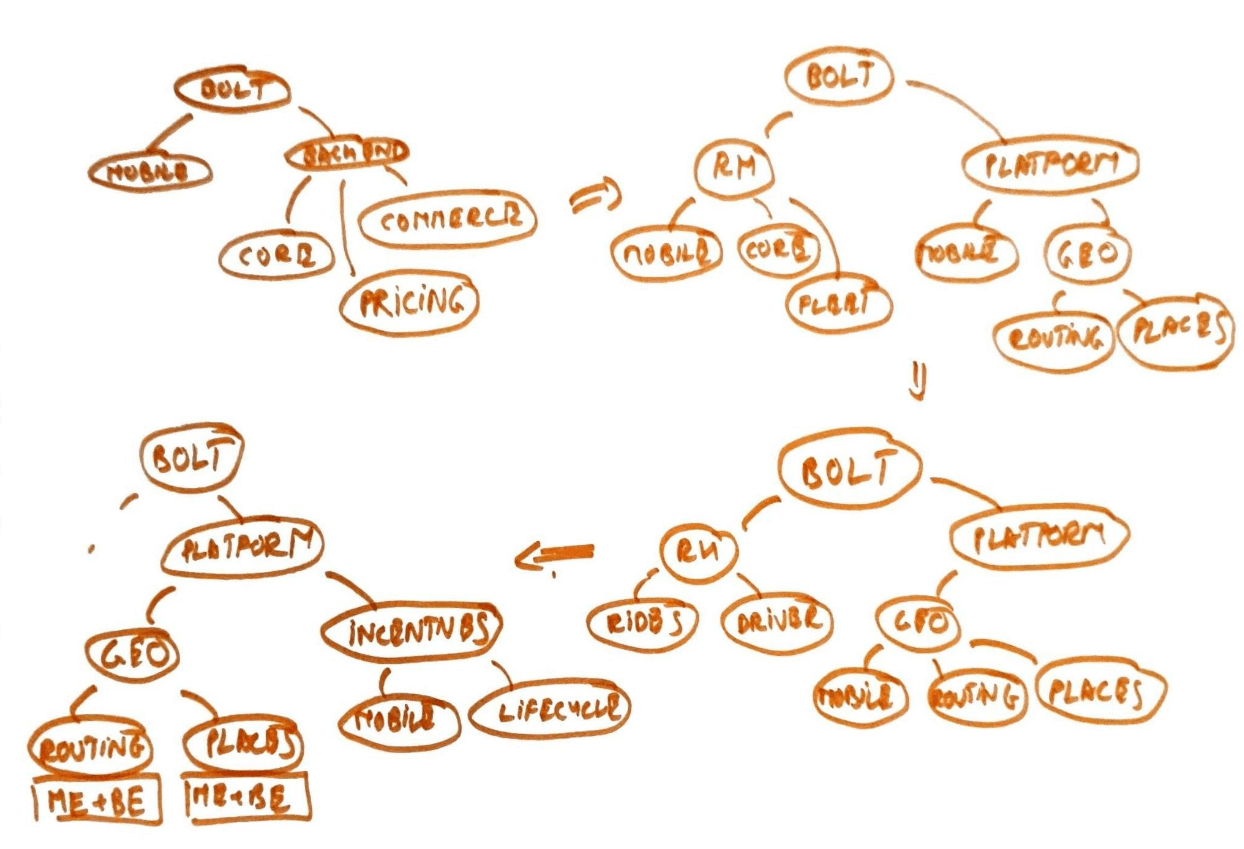 BOLT
MOBILE
BACKEND
CORE
COMMERCE
PRICING
BOLT
RH
PLATFORM
MOBILE
CORE
FLEET
MOBILE
GEO
ROUTING
PLACES
BOLT
RH
PLATFORM
RIDES
DRIVER
GEO
MOBILE
ROUTING
PLACES
BOLT
PLATFORM
GEO
INCENTIVES
ROUTING
PLACES
MOBILE
LIFECYCLE
ME+BE
ME+BE